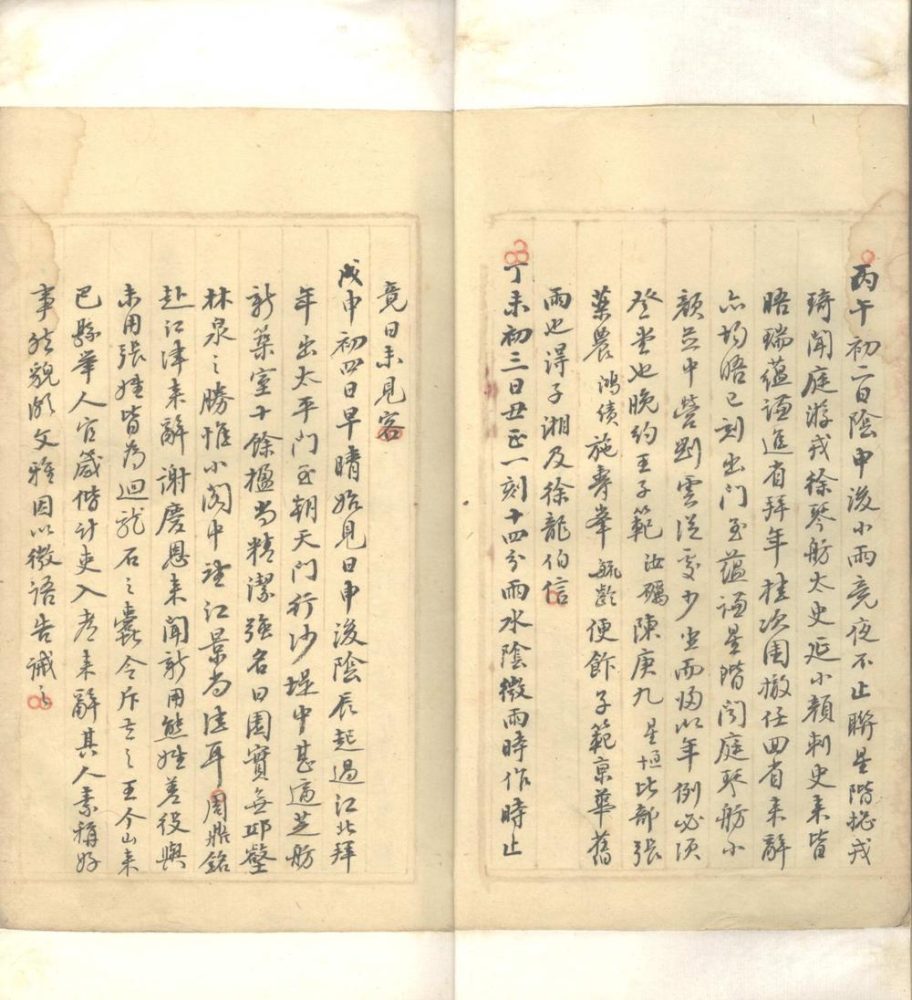 丙午初二日陰申後小雨竟夜不止聯星階揔戎
琦聞庭游戎徐琴舫太史延小顏刺史来皆
晤瑞蘊謙進省拜年桂次園撤任回省来辭
亦均晤巳刻出門至蘊謙星階聞庭琴舫小
顏並中營劉雲從處少坐而歸以年例必須
登堂也晚約王子範汝礪陳庚九星恒比部張
藥農鴻績施壽峯毓齡便飾子範京華舊
雨也得子湘及徐龍伯信
丁未初三日丑正一刻十四分雨水陰微雨時作時止
竟日未見客
戊申初四日早晴始見日申後陰辰起過江北拜
年出太平門至朝天門行沙堤中甚適芝舫
新築室十餘楹尚精潔強名曰園實無邱壑
林泉之勝惟小閣中望江景尚佳耳周鼎銘
赴江津来辭謝慶恩来聞新用熊姓差役與
未用張姓皆為迴龍石之蠹令斥去之王介山来
巴縣舉人官箴偕計吏入都来辭其人素稱好
事然貌頗文雅因以微語告誡之